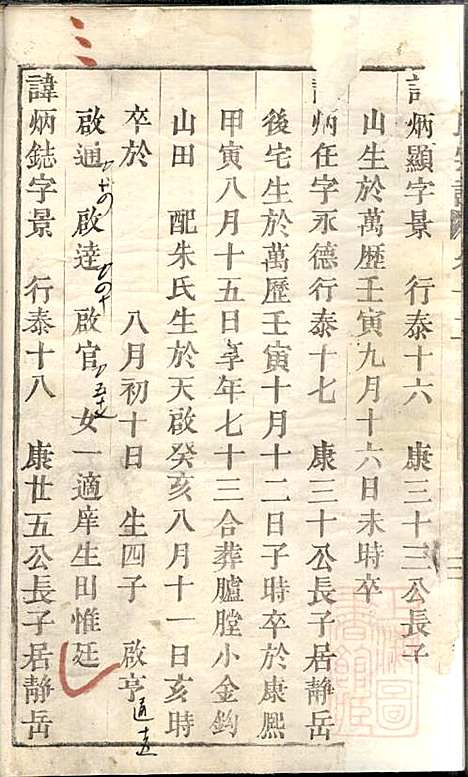 諱炳顯字景 行泰十六 康三十三公長子
山生於萬歷壬寅九月十六日未時卒
炳任字永德行泰十七 康三十公長子居靜岳
後宅生於萬歷壬寅十月十二日子時卒於康熙
甲寅八月十五日享年七十三合葬臚膛小金鈎
山田 配朱氏生於天啟癸亥八月十一日亥時
卒於 八月初十日 生四子 啟亨
啟通 啟達 啟官 女一適庠生田惟廷
諱炳鋕字景 行泰十八 康廿五公長子居靜岳